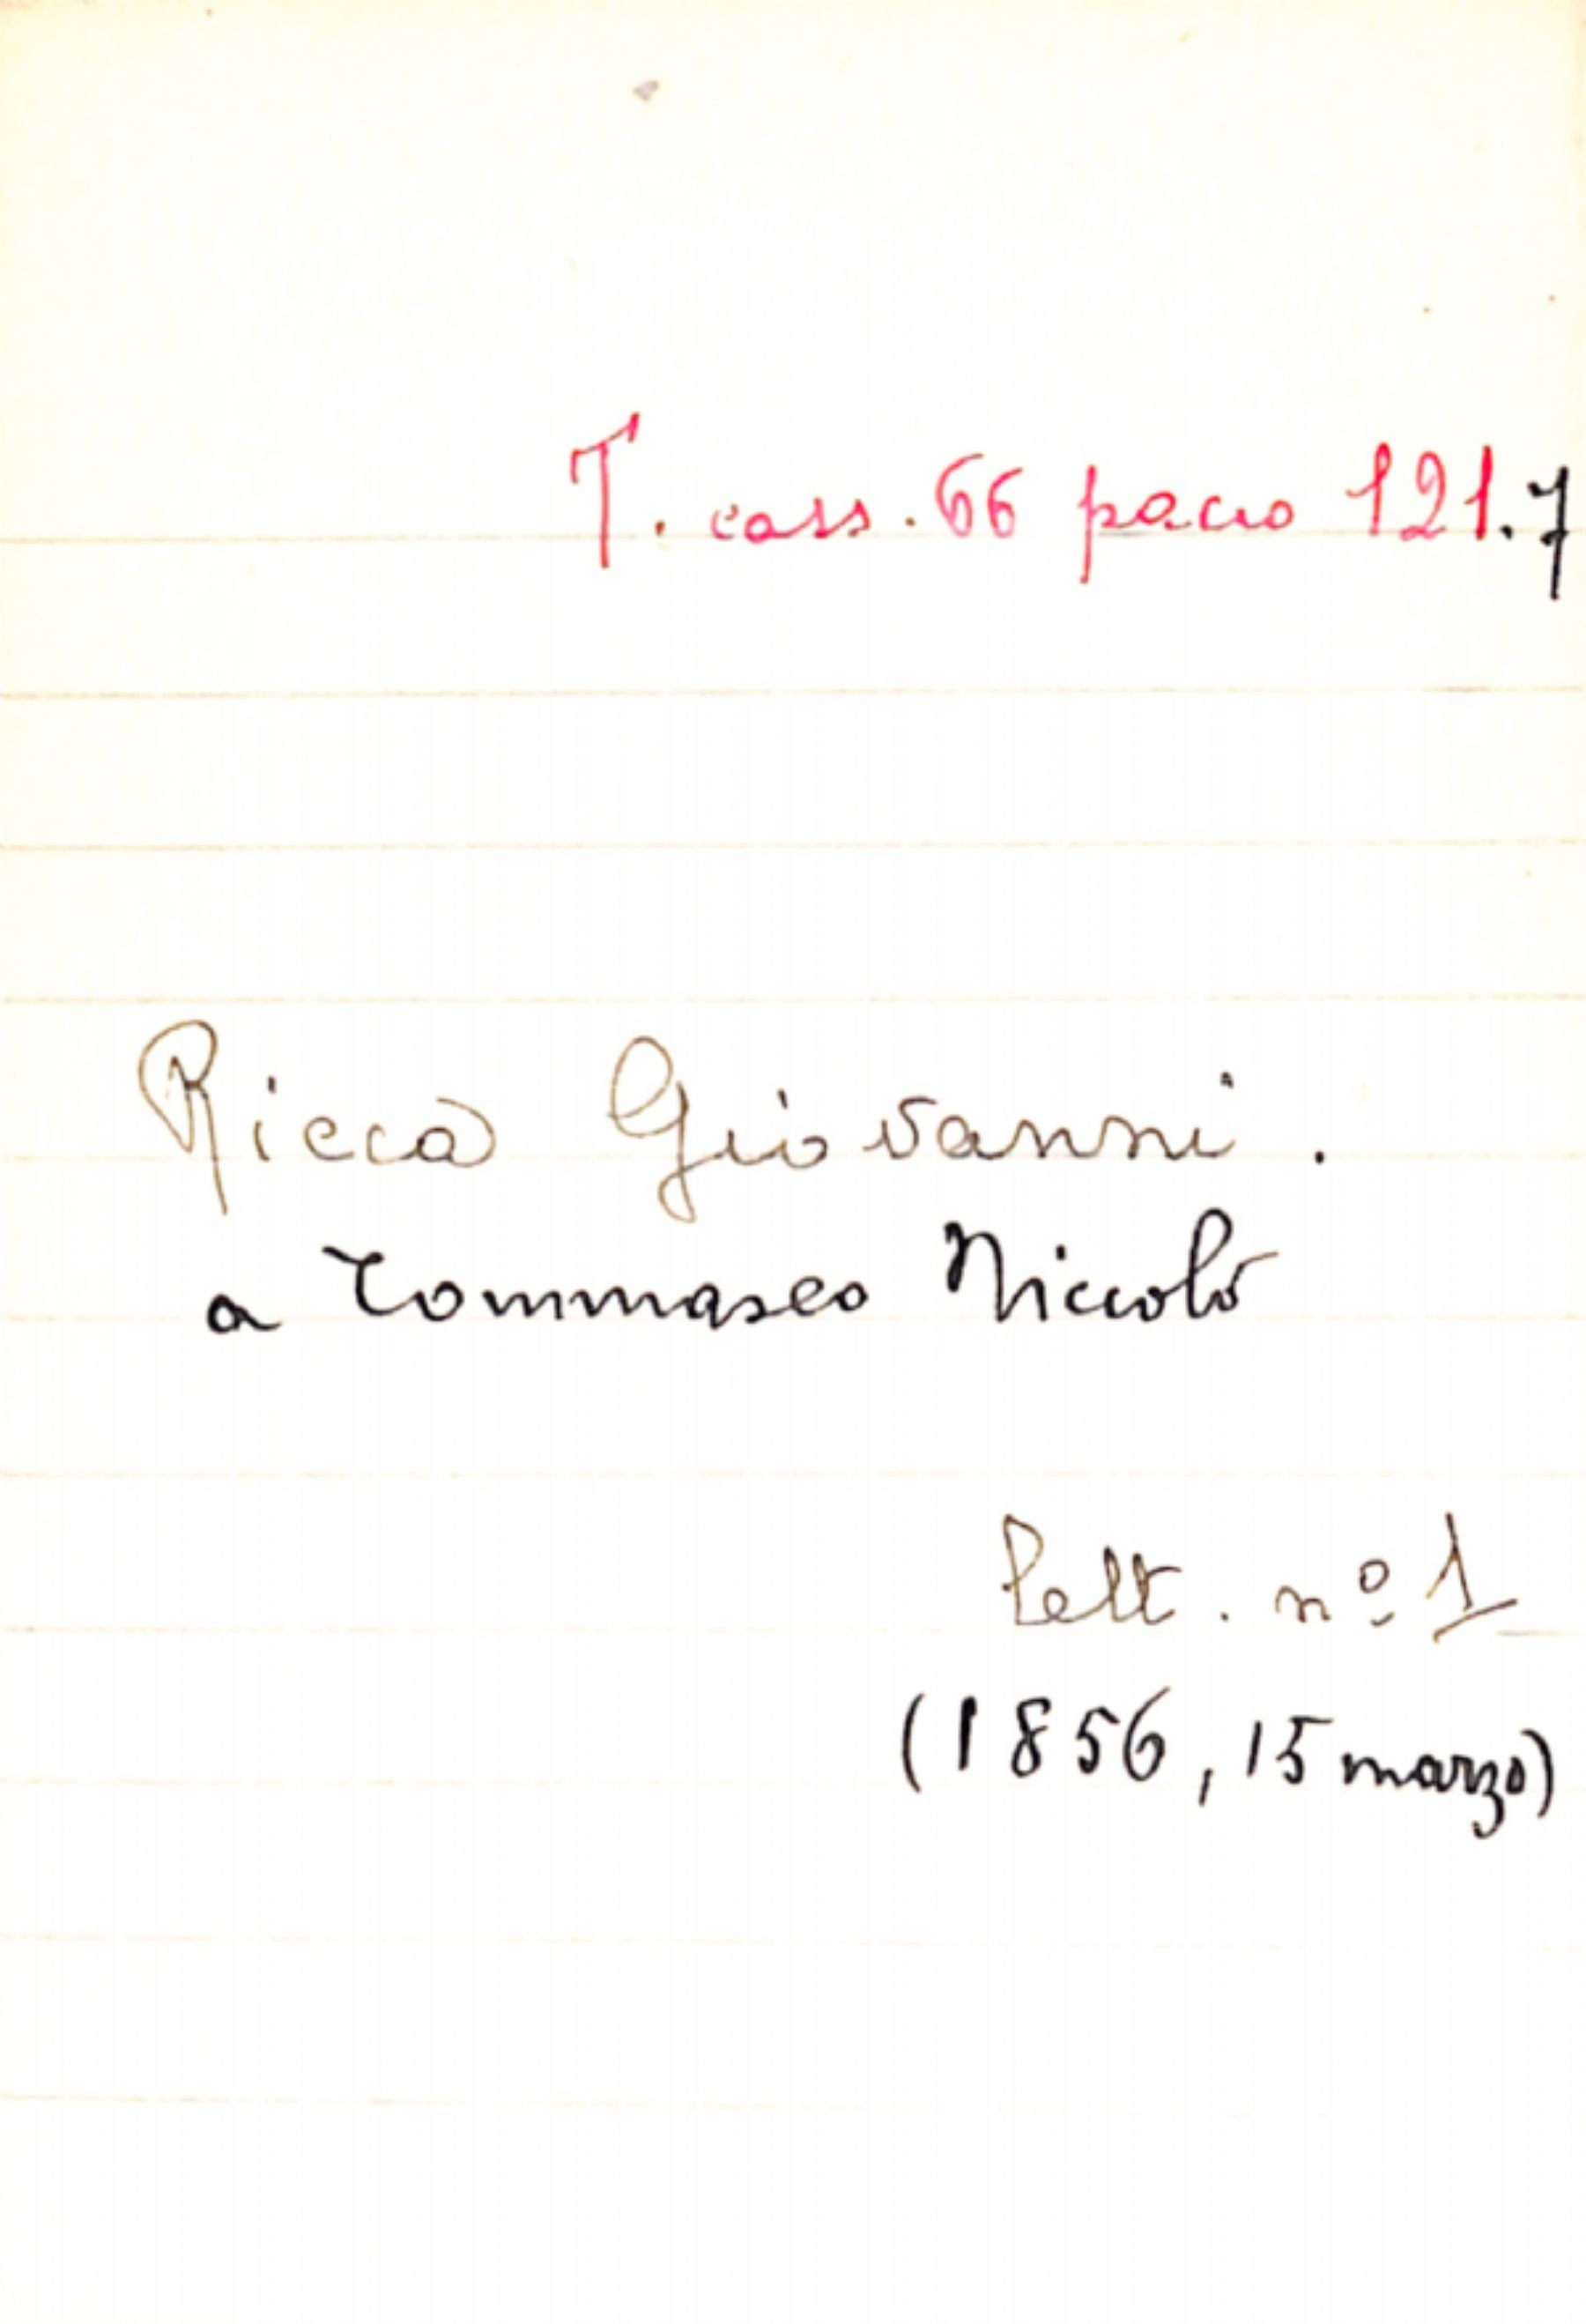 T. cass. 66 pacco 121.7
Ricca Giovanni.
a Tommaseo Niccolò
Lett. nº 1
(1856, 15 marzo)